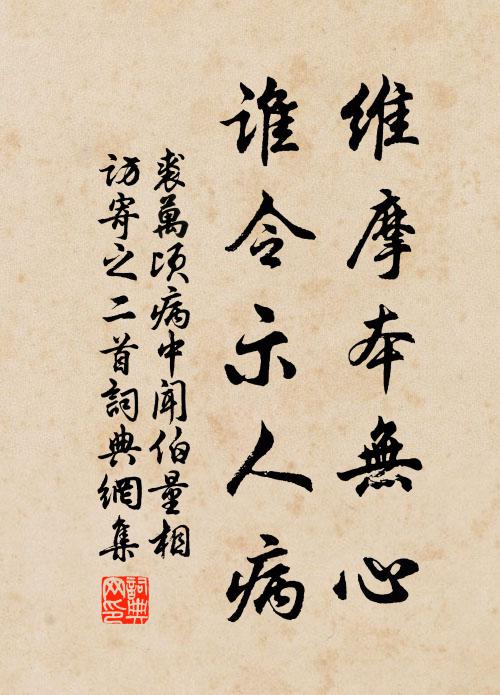 维摩本無心
谁令示人病
裘萬頃病中闻伯量相
访寄之二首詞典網集
詞典網印